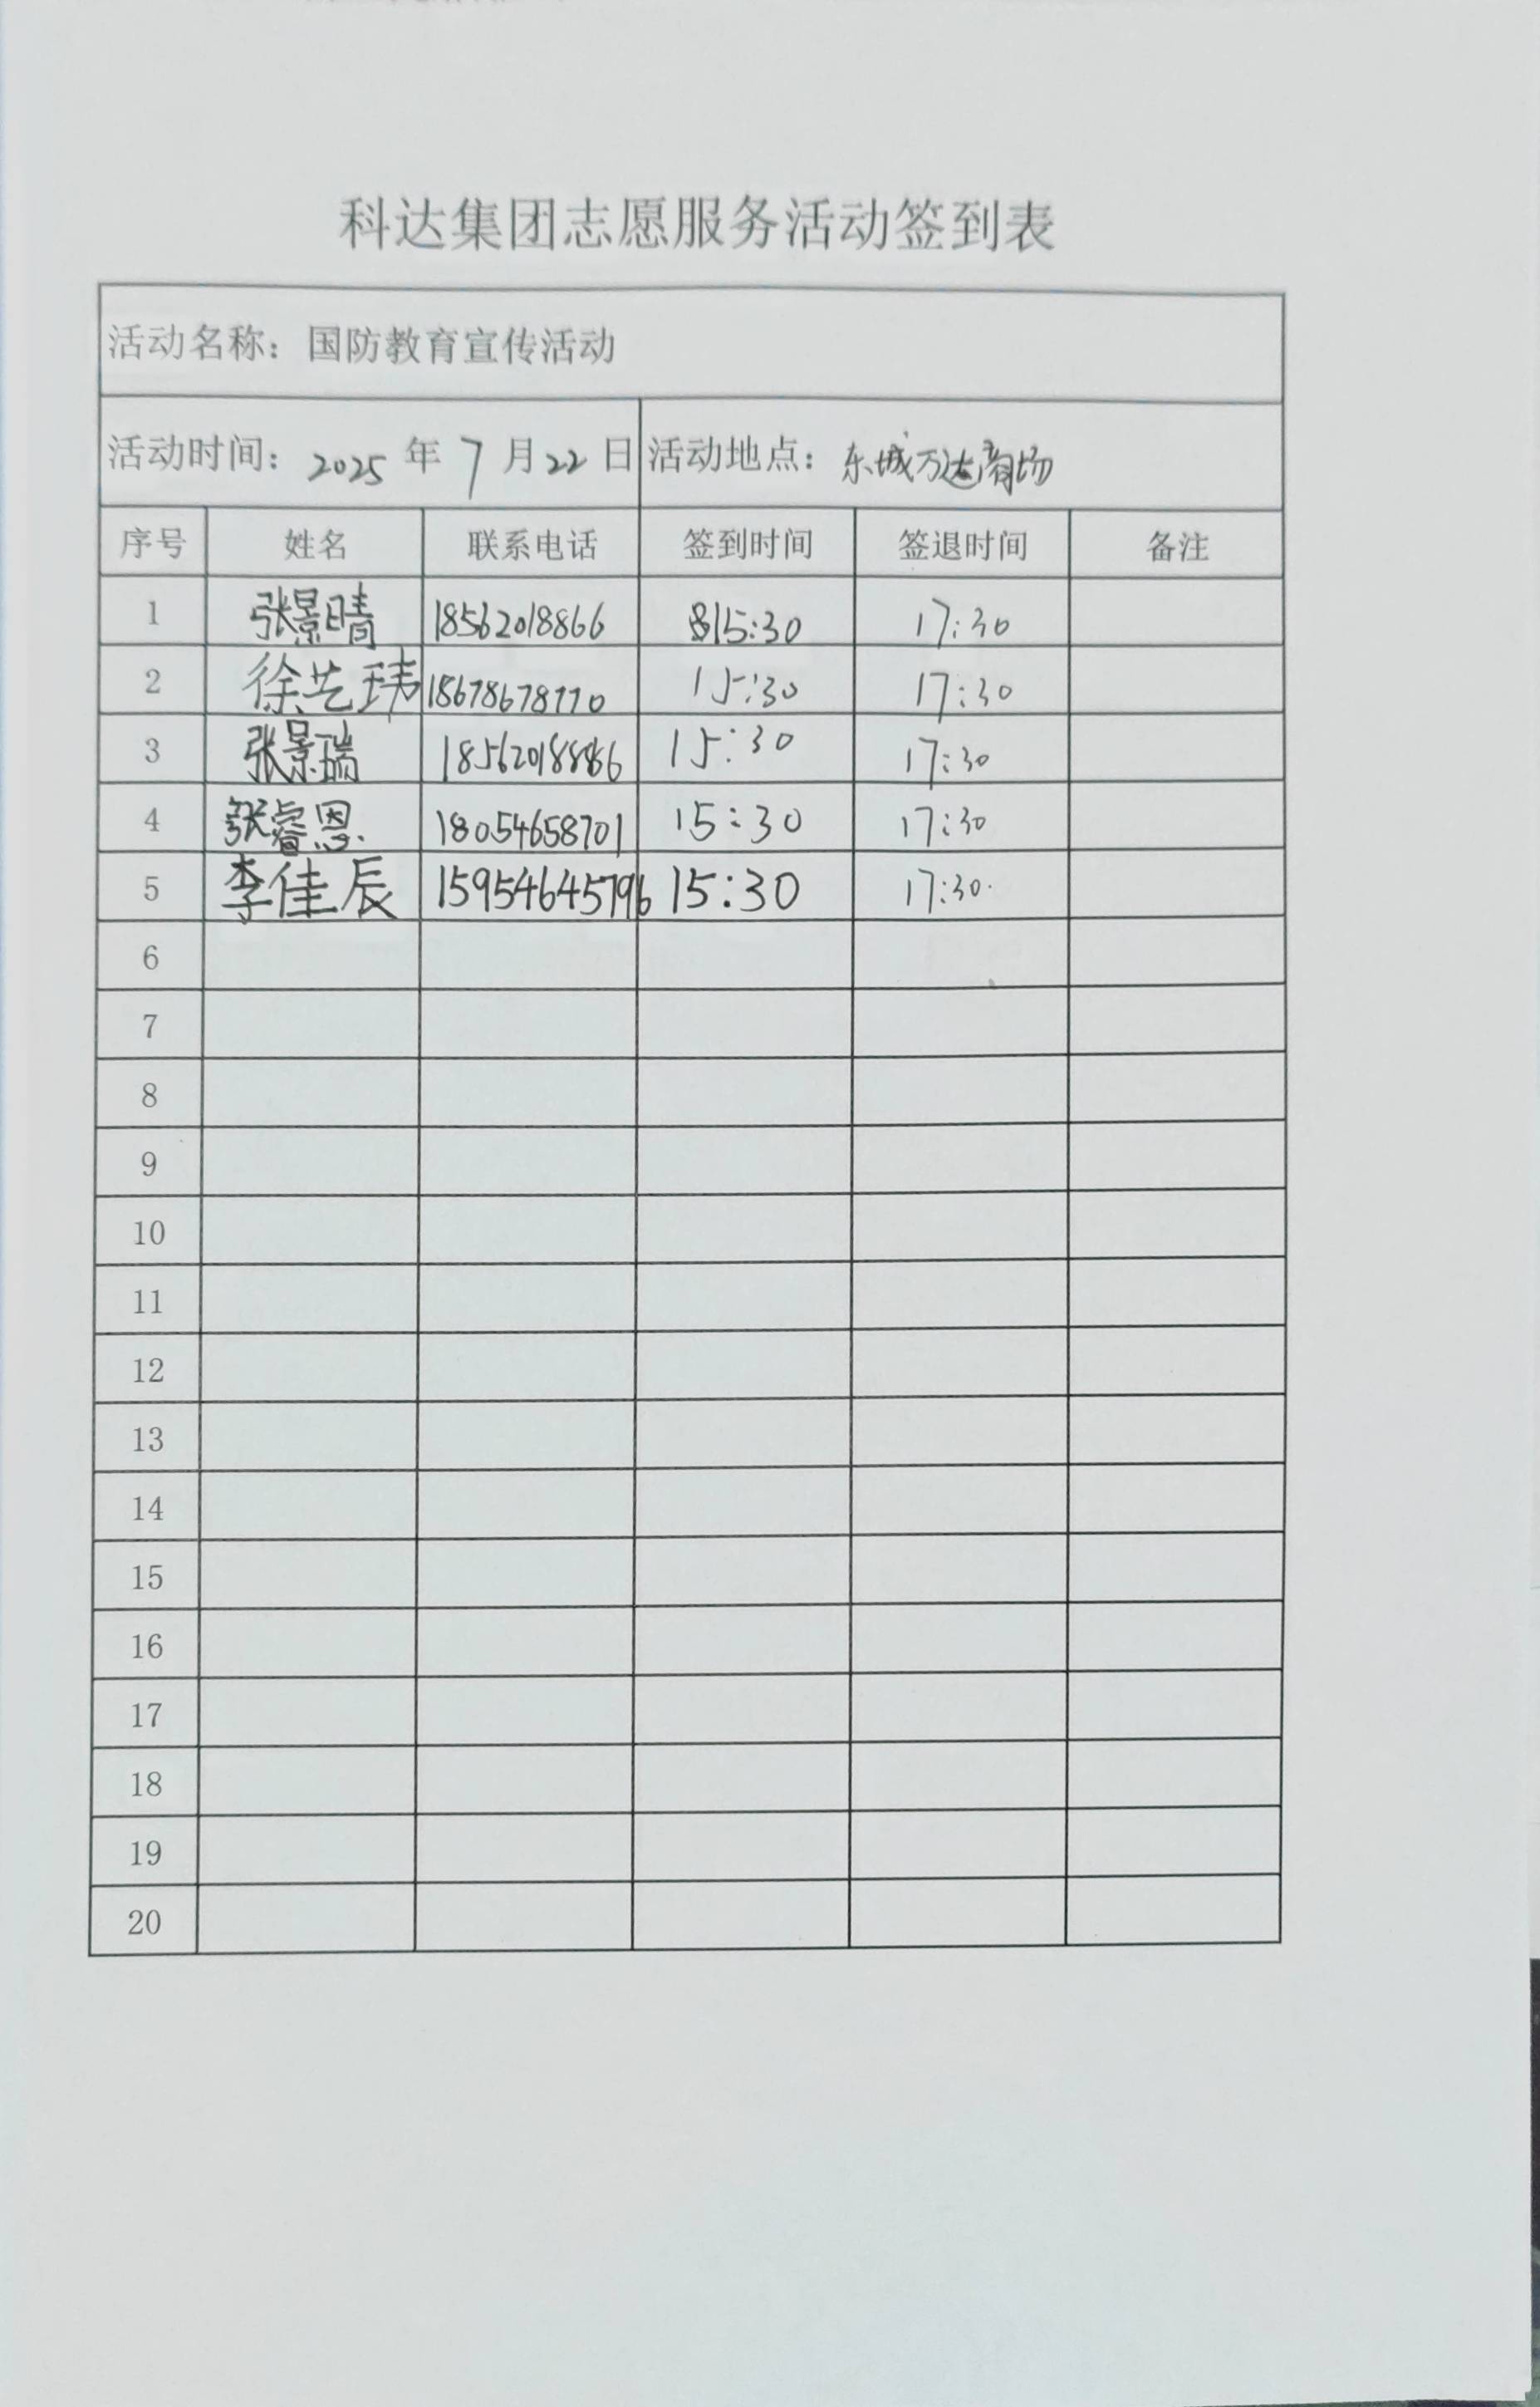 科达集团志愿服务活动签到表
活动名称：国防教育宣传活动
活动时间：2025 年 7 月 22 日 活动地点：东城万达商场
序号 姓名 联系电话 签到时间 签退时间 备注
1 张景晴 18562018866 15:30 17:30
2 徐艺玮 18678678770 15:30 17:30
3 张景瑞 18562018866 15:30 17:30
4 张睿恩 18054658701 15:30 17:30
5 李佳辰 15954645796 15:30 17:30
6
7
8
9
10
11
12
13
14
15
16
17
18
19
20